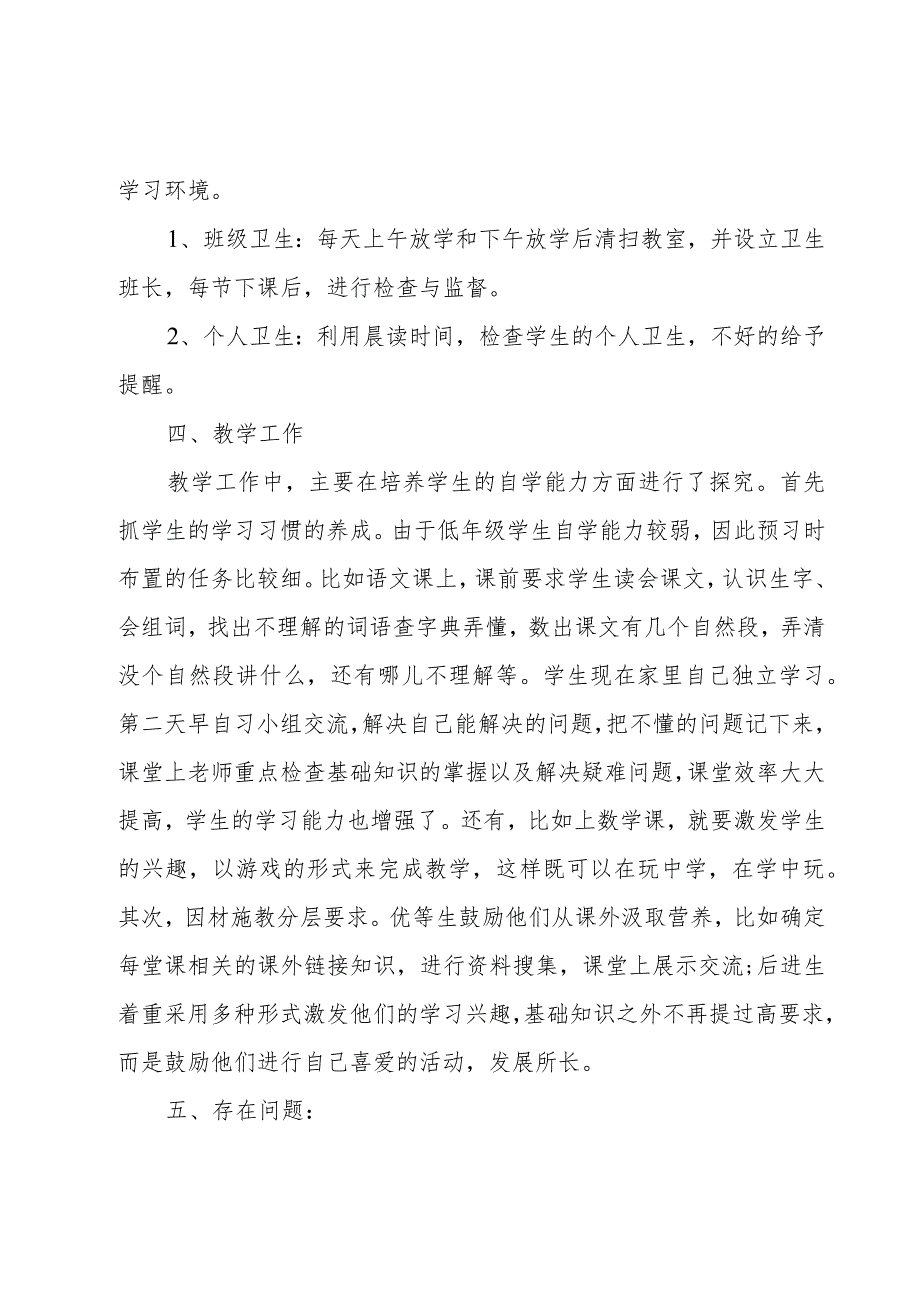 学习环境。
1、班级卫生：每天上午放学和下午放学后清扫教室，并设立卫生
班长，每节下课后，进行检查与监督。
2、个人卫生：利用晨读时间，检查学生的个人卫生，不好的给予
提醒。
四、教学工作
教学工作中，主要在培养学生的自学能力方面进行了探究。首先
抓学生的学习习惯的养成。由于低年级学生自学能力较弱，因此预习时
布置的任务比较细。比如语文课上，课前要求学生读会课文，认识生字、
会组词，找出不理解的词语查字典弄懂，数出课文有几个自然段，弄清
没个自然段讲什么，还有哪儿不理解等。学生现在家里自己独立学习。
第二天早自习小组交流，解决自己能解决的问题，把不懂的问题记下来，
课堂上老师重点检查基础知识的掌握以及解决疑难问题，课堂效率大大
提高，学生的学习能力也增强了。还有，比如上数学课，就要激发学生
的兴趣，以游戏的形式来完成教学，这样既可以在玩中学，在学中玩。
其次，因材施教分层要求。优等生鼓励他们从课外汲取营养，比如确定
每堂课相关的课外链接知识，进行资料搜集，课堂上展示交流;后进生
着重采用多种形式激发他们的学习兴趣，基础知识之外不再提过高要求，
而是鼓励他们进行自己喜爱的活动，发展所长。
五、存在问题：